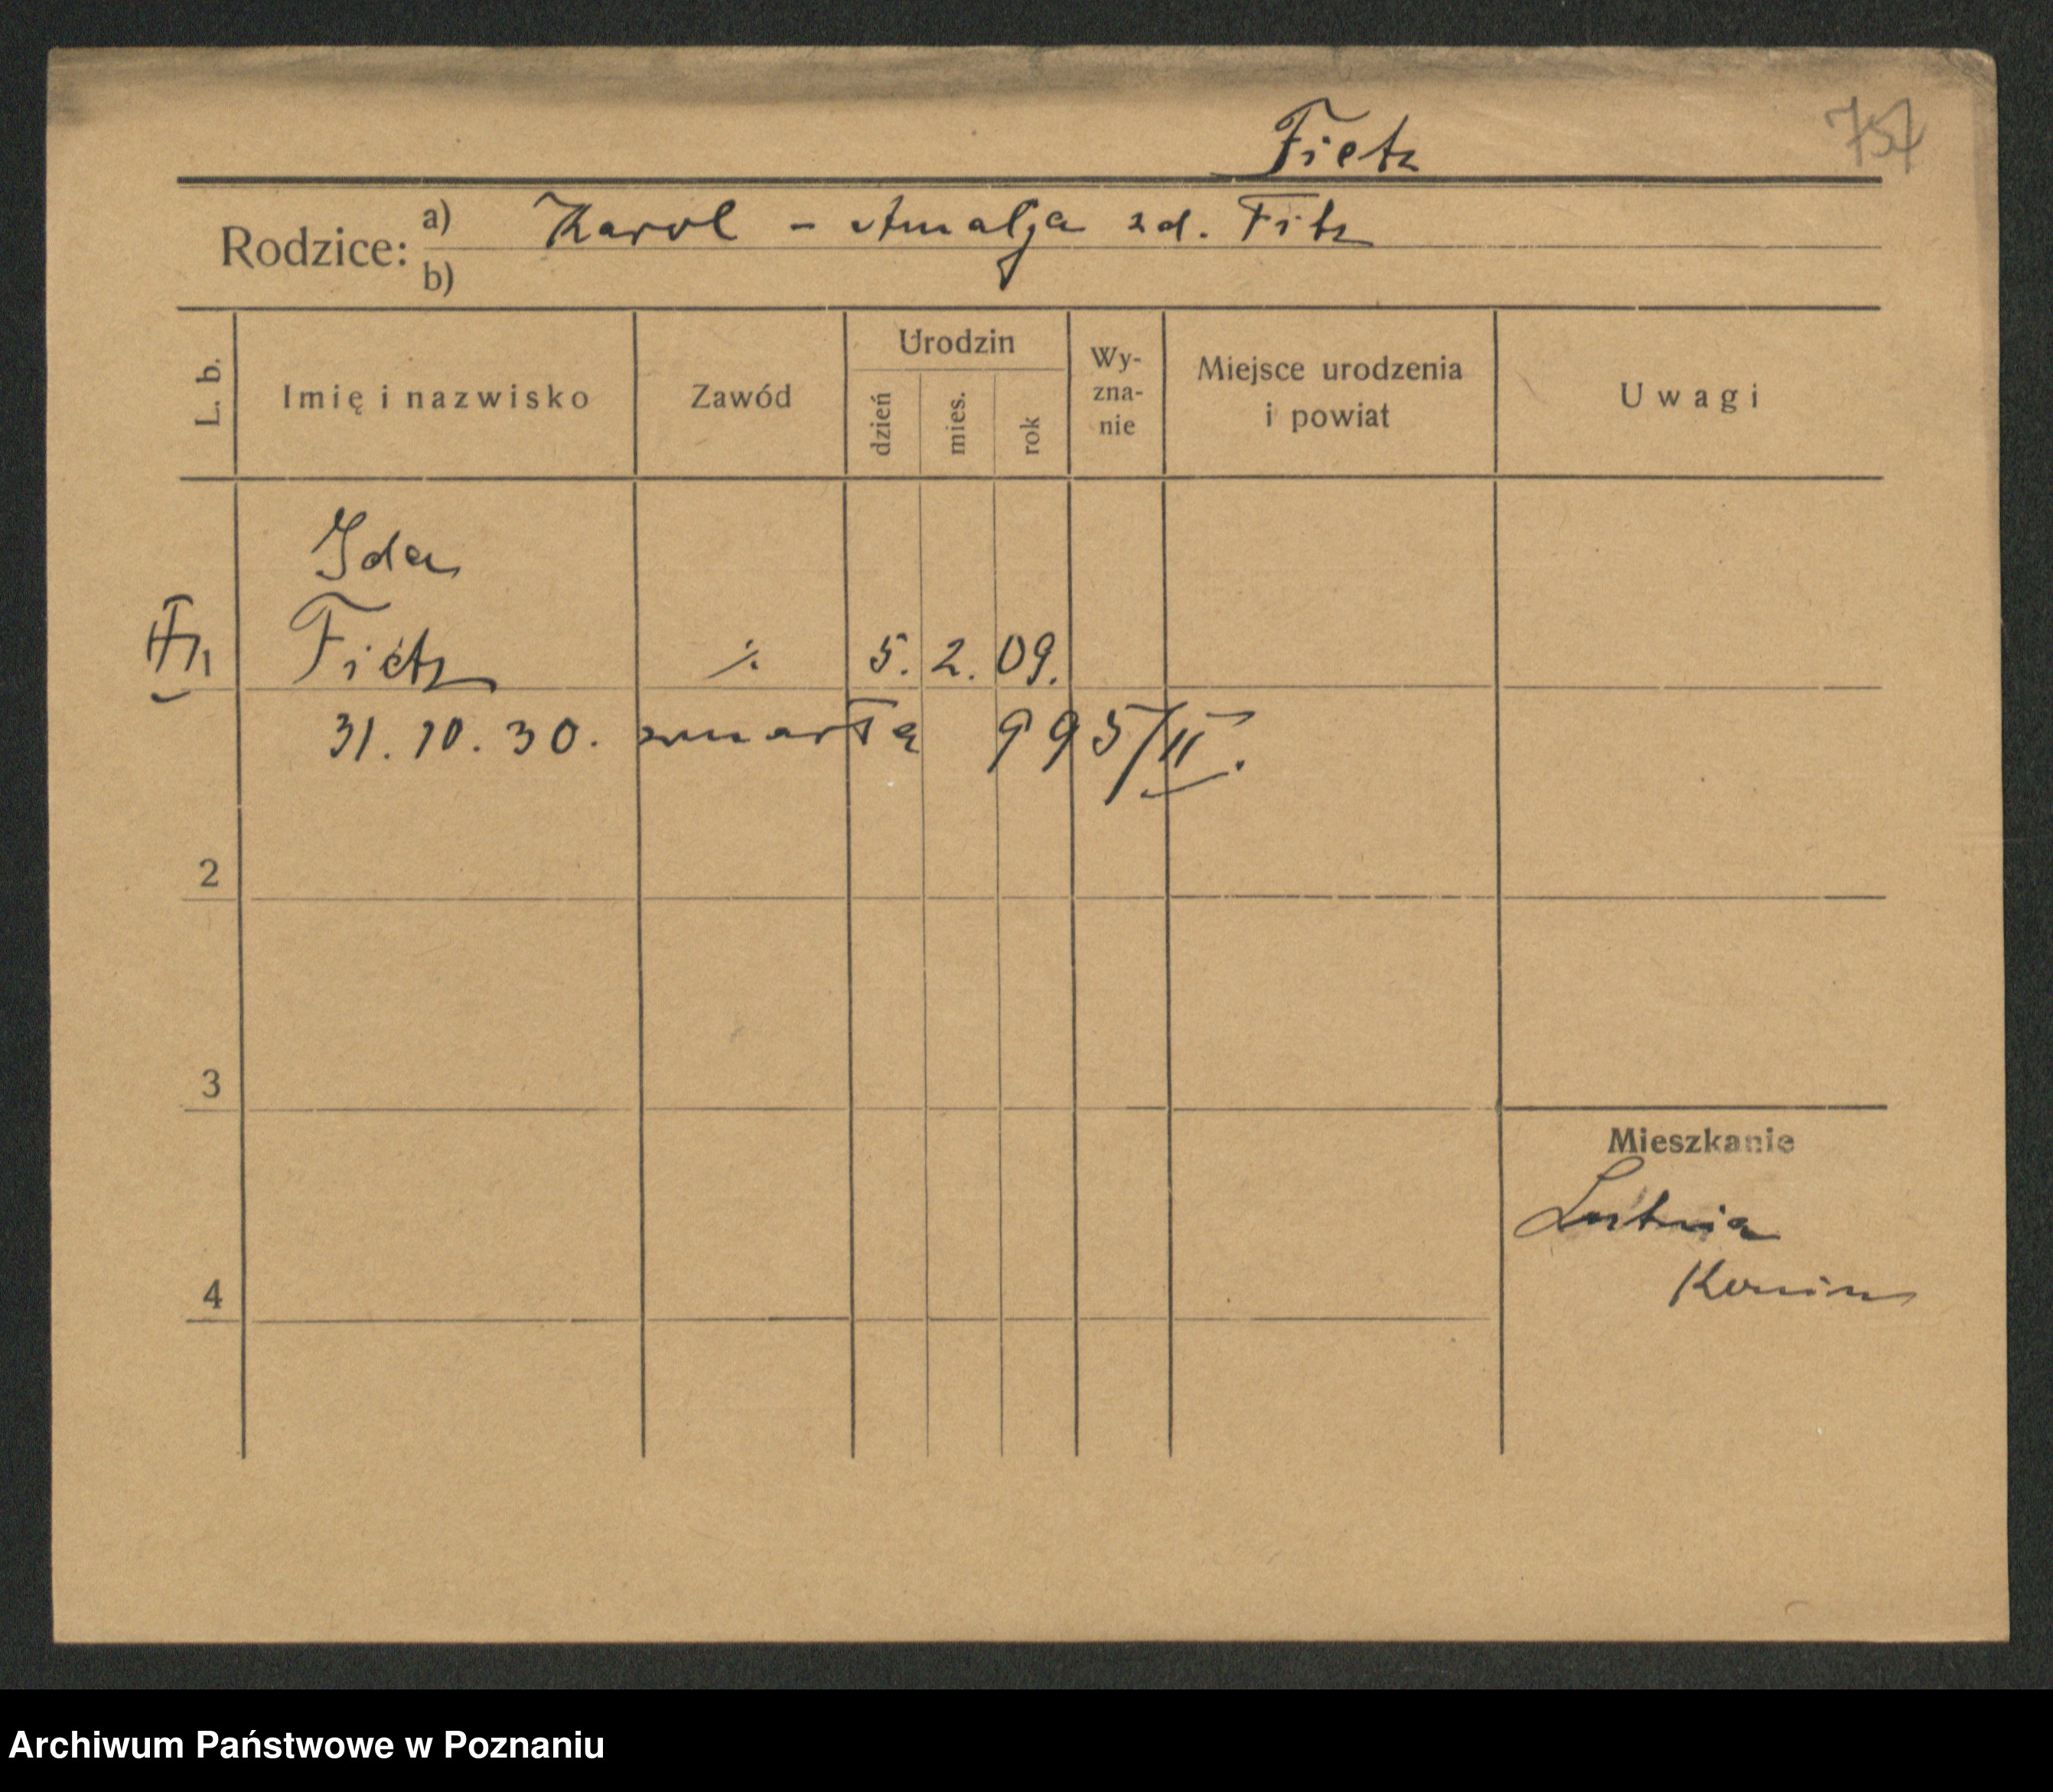 Fietz
757
Rodzice: a) Karol - Amalja zd. Fitz
b)
L. b.
Imię i nazwisko
Zawód
Urodzin
dzień
mies.
rok
Wy-
zna-
nie
Miejsce urodzenia
i powiat
Uwagi
Ida
1 Fietz ./. 5. 2. 09.
31. 10. 30. zmarła 995/II.
2
3
Mieszkanie
Konin
4
Archiwum Państwowe w Poznaniu